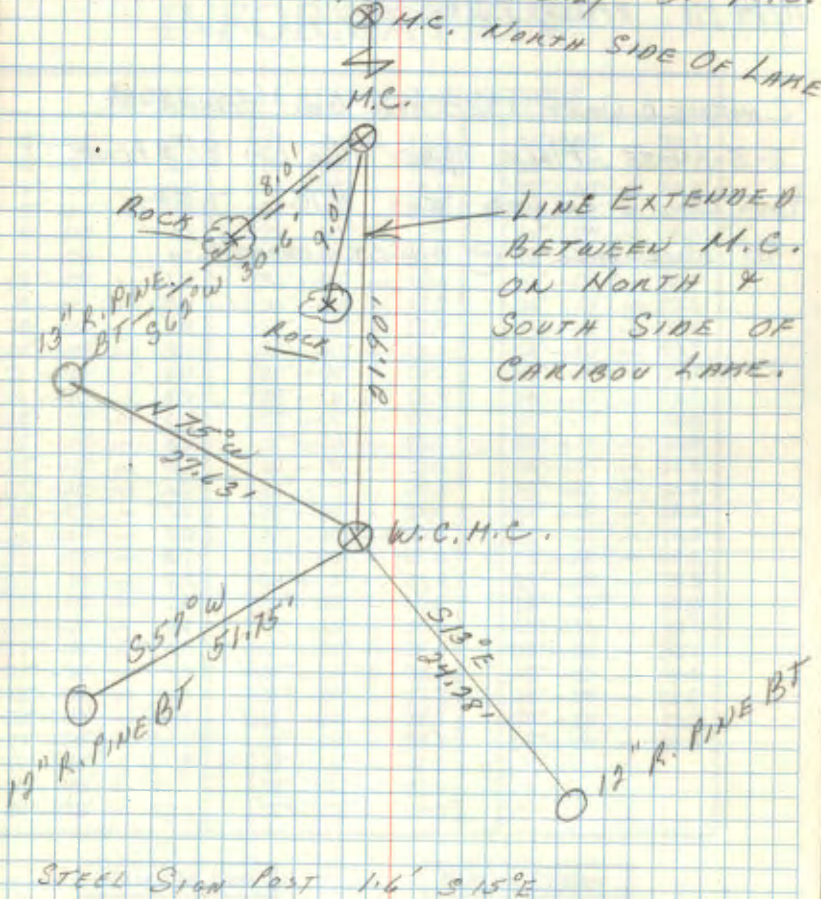 M.C. NORTH SIDE OF LAKE
M.C.
8.0'
ROCK
30.6'
9.0'
LINE EXTENDED
BETWEEN M.C.
ON NORTH &
SOUTH SIDE OF
CARIBOU LAKE.
13" R. PINE
BT
S62°W
ROCK
21.90'
N75°W
27.63'
W.C.M.C.
S57°W
51.75'
S13°E
24.28'
12" R. PINE BT
12" R. PINE BT
STEEL SIGN POST 1.6' S15°E